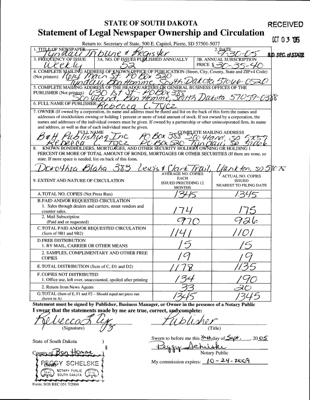 STATE OF SOUTH DAKOTA
Statement of Legal Newspaper Ownership and Circulation
RECEIVED
OCT 03 '05
S.D. SEC. OF STATE
Return to: Secretary of State, 500 E. Capitol, Pierre, SD 57501-5077
1. TITLE OF NEWSPAPER
Tyndall Tribune & Register
2. DATE
9-30-05
3. FREQUENCY OF ISSUE
Weekly
3A. NO. OF ISSUES PUBLISHED ANNUALLY
52
3B. ANNUAL SUBSCRIPTION
PRICE $ 30-35-40
4. COMPLETE MAILING ADDRESS OF KNOWN OFFICE OF PUBLICATION (Street, City, County, State and ZIP+4 Code)
(Not printers)
Tyndall, Bon Homme, South Dakota
5. COMPLETE MAILING ADDRESS OF THE HEADQUARTERS OR GENERAL BUSINESS OFFICES OF THE
PUBLISHER (Not printers)
PO Box 388
Scotland, Bon Homme, South Dakota
6. FULL NAME OF PUBLISHER
Rebecca L. Tycz
7. OWNER (If owned by a corporation, its name and address must be stated and also
addresses of stockholders owning or holding 1 percent or more of total amount of stock. If not owned by a corporation, the
names and addresses of the individual owners must be given. If owned by a partnership or other unincorporated firm, its name
and address, as well as that of each individual must be given.
FULL NAME
COMPLETE MAILING ADDRESS
B & H Publishing Inc PO Box 388 Scotland, SD 57059
Rebecca Tycz PO Box 520 Tyndall SD
8. KNOWN BONDHOLDERS, MORTGAGEES, AND OTHER SECURITY HOLDERS OWNING OR HOLDING 1
PERCENT OR MORE OF TOTAL AMOUNT OF BONDS, MORTGAGES OR OTHER SECURITIES (If there are none, so
state. If more space is needed, list on back of this form.
Dorothia Blaha 385 Lewis & Clark Trail, Yankton, SD
9. EXTENT AND NATURE OF CIRCULATION
AVERAGE NO. COPIES EACH ISSUED PRECEDING 12 MONTHS
ACTUAL NO. COPIES ISSUED NEAREST TO FILING DATE
A. TOTAL NO. COPIES (Net Press Run) 1345 1345
B. PAID AND/OR REQUESTED CIRCULATION
1. Sales through dealers and carriers, street vendors and counter sales. 174 175
2. Mail Subscription (Paid and or requested) 970 926
C. TOTAL PAID AND/OR REQUESTED CIRCULATION (Sum of 9B1 and 9B2) 1141 1101
D. FREE DISTRIBUTION
1. BY MAIL, CARRIER OR OTHER MEANS 15 15
2. SAMPLES, COMPLIMENTARY AND OTHER FREE COPIES 19 19
E. TOTAL DISTRIBUTION (Sum of C, D1 and D2) 1178 1135
F. COPIES NOT DISTRIBUTED
1. Office use, left over, unaccounted, spoiled after printing 134 190
2. Return from News Agents 33 20
G. TOTAL (Sum of E, F1 and F2 - Should equal net press run shown in A) 1345 1345
Statement must be signed by Publisher, Business Manager, or Owner in the presence of a Notary Public
I swear that the statements made by me are true, correct, and complete:
Rebecca L Tycz
(Signature)
Publisher
(Title)
State of South Dakota )
County of Bon Homme )
Sworn to before me this day of Sept., 2005
Peggy Schelske
Notary Public
My commission expires: 10-24-2009
PEGGY SCHELSKE
NOTARY PUBLIC
SOUTH DAKOTA
SEAL